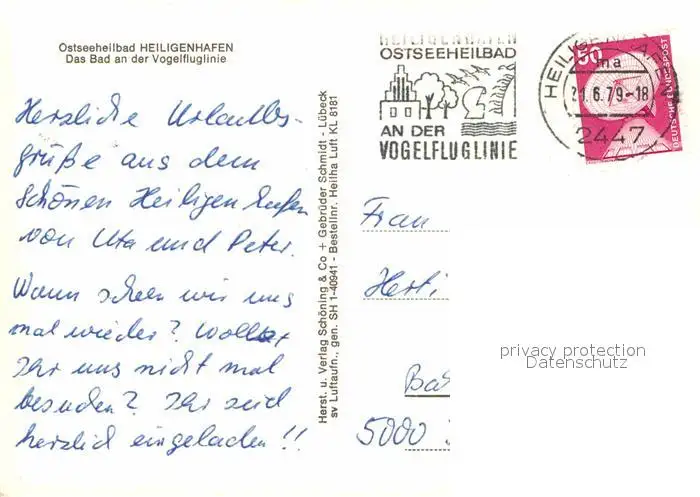 Ostseeheilbad HEILIGENHAFEN
Das Bad an der Vogelfluglinie
Herzliche Urlaubs-
grüße aus dem
schönen Heiligenhafen
von Uta und Peter.
Wann sehen wir uns
mal wieder? Wollt
Ihr uns nicht mal
besuchen? Ihr seid
herzlich eingeladen!!
Herst. u. Verlag Schöning & Co + Gebrüder Schmidt - Lübeck
sv Luftaufn., gen. SH 1-40941 - Bestellnr. Heilha Luft KL 8181
HEILIGENHAFEN
OSTSEEHEILBAD
AN DER
VOGELFLUGLINIE
HEILIGENHAFEN
ma
21.6.79-18
2447
50
DEUTSCHE BUNDESPOST
Frau
Herti
Bad
5000
privacy protection
Datenschutz